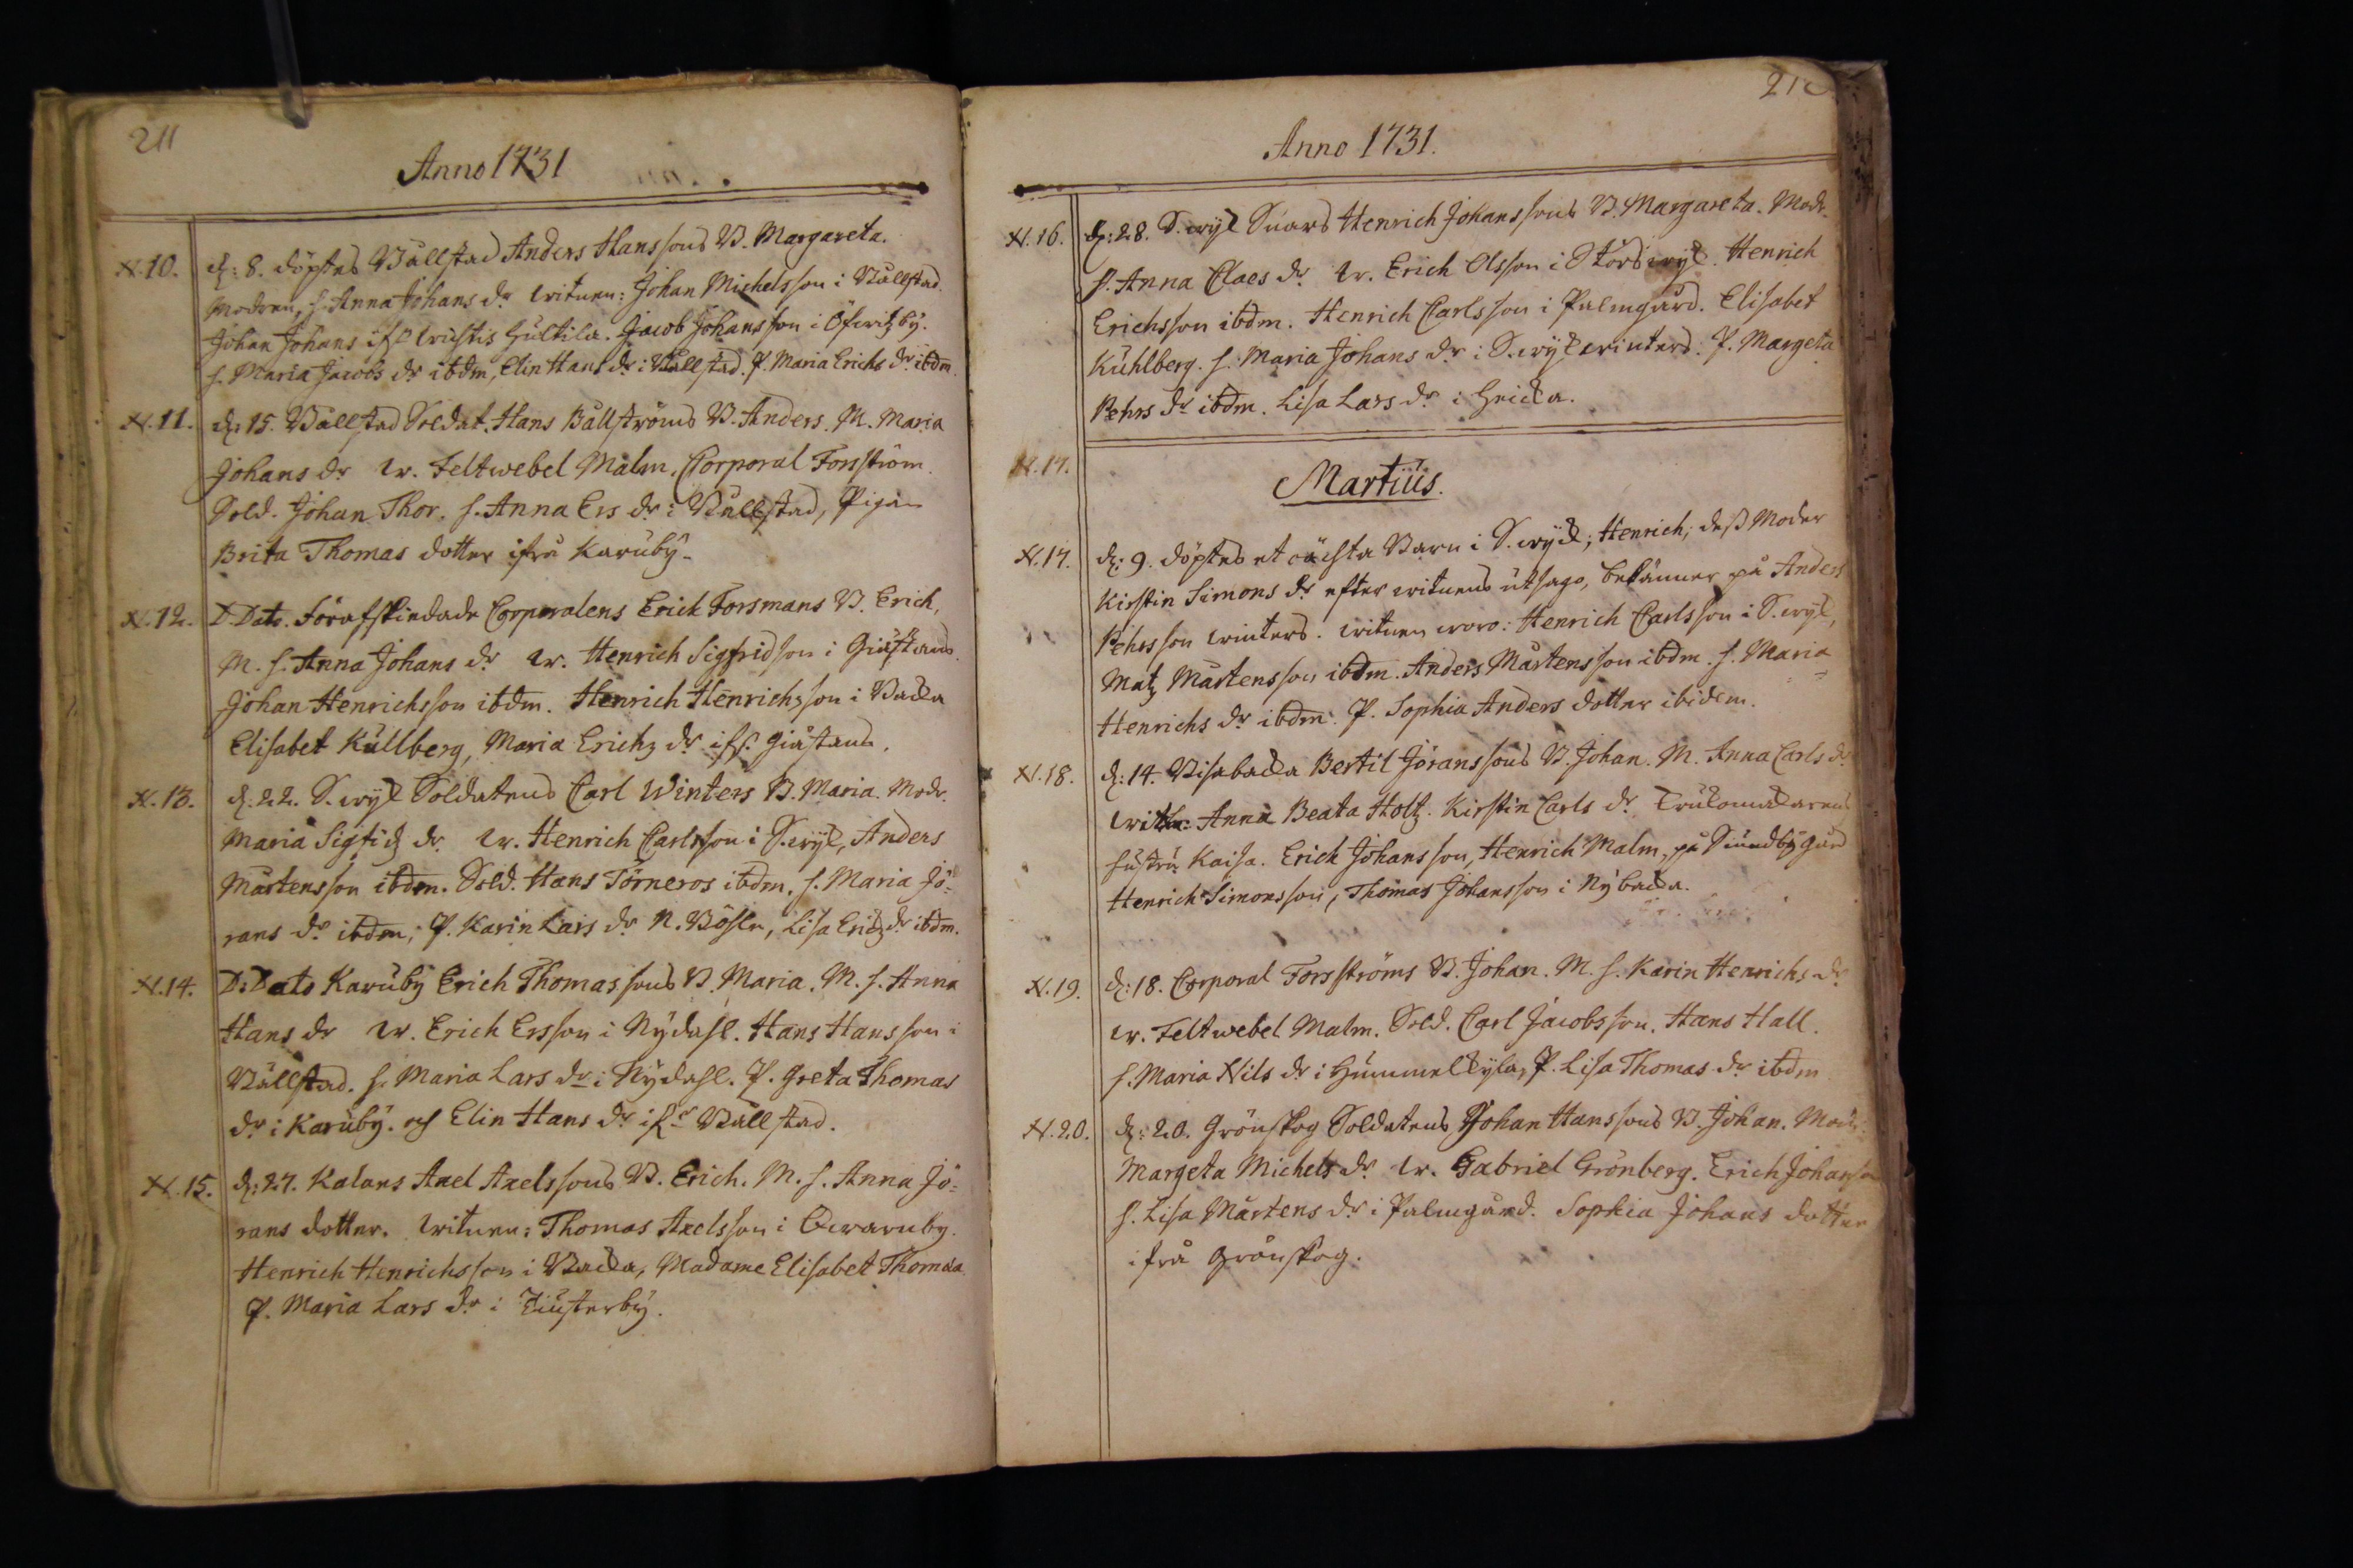 211
Anno 1731
N. 10. d: 8. döptes Bållstad Anders Hanssons B. Margareta.
Modren, h. Anna Johans dr witnen: Johan Michelsson i Bållstad.
Johan Johans Gultila. Jacob Johansson i Öfwitzby.
h. Maria Jacobs dr ibdm, Elin Hans dr i Bållstad. P. Maria Erichs dr ibdm.
N. 11. d: 15. Bållstad Soldat. Hans Bållströms B. Anders. M. Maria
Johans dr w. Feltwebel Malm. Corporal Forsström.
Sold. Johan Thor. h. Anna Ers dr i Bållstad, Pigan
Brita Thomas dotter ifrå Karuby.
N. 12. D. Dato. Förafskiedade Corporalens Erich Forsmans B. Erich,
M. h. Anna Johans dr w. Henrich Sigfridson i Giästans.
Johan Henrichsson ibdm. Henrich Henrichsson i Backa
Elisabet Kullberg, Maria Erichz dr if. Giästans.
N. 13. d: 22. S. wijk Soldatens Carl Winters B. Maria. Modr.
Maria Sigfridz dr. w. Henrich Carlsson i S. wijk, Anders
Mårtensson ibdm. Sold. Hans Törneros ibdm. h. Maria Jö-
rans dr ibdm, P. Karin Lars dr N. Böhle, Lisa Erichz dr ibdm.
N. 14. D: Dato Karuby Erich Thomassons B. Maria. M. h. Anna
Hans dr w. Erich Ersson i Nydahl. Hans Hansson i
Bållstad. h. Maria Lars dr i Nydahl. P. Greta Thomas
dr i Karuby. och Elin Hans dr ifr Bållstad.
N. 15. d: 27. Kalans Axel Axelssons B. Erich. M. h. Anna Jö-
rans dotter. witnen: Thomas Axelsson i Qwarnby.
Henrich Henrichsson i Backa, Madame Elisabet
P. Maria Lars dr i Tiusterby.
Anno 1731.
N. 16. d: 28. S. wijk Henrich Johanssons B. Margareta. Modr.
h. Anna Claes dr w. Erich Olsson i Storswijk. Henrich
Erichsson ibdm. Henrich Carlsson i Palmgård. Elisabet
Kuhlberg. h. Maria Johans dr i S. wijk winters. P. Margeta
Pehrs dr ibdm. Lisa Lars dr i
N. 17.
Martius.
N. 17. d: 9. döptes et oächta Barn i S. wijk; Henrich, dess Moder
Kirstin Simons dr efter witnens utsago, bekänner på Anders
Pehrsson winters. witnen woro: Henrich Carlsson i S. wijk,
Matz Mårtensson ibdm. Anders Mårtensson ibdm. h. Maria
Henrichs dr ibdm. P. Sophia Anders dotter ibidem.
N. 18. d: 14. Bisabacka Bertil Jöranssons B. Johan. M. Anna Carls dr
witn: Anna Beata Holtz. Kirstin Carls dr
hustru Kaisa. Erich Johansson, Henrich Malm, på Siundby gård
Henrich Simonsson, Thomas Johansson i Nybacka.
N. 19. d: 18. Corporal Forsströms B. Johan. M. h. Karin Henrichs dr
w. Feltwebel Malm. Sold. Carl Jacobsson. Hans Hall.
h. Maria Nils dr i Hummelkyla, P. Lisa Thomas dr ibdm
N. 20. d: 20. Grönskog Soldatens Johan Hanssons B. Johan. Modr:
Margeta Michels dr w. Gabriel Grönberg. Erich Johansson
h. Lisa Mårtens dr i Palmgård. Sophia Johans dotter
ifrå Grönskog.